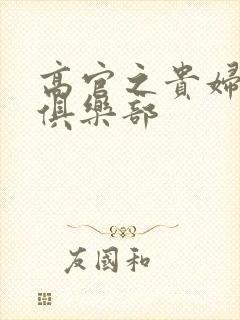 高官之貴婦
俱樂部
友國和